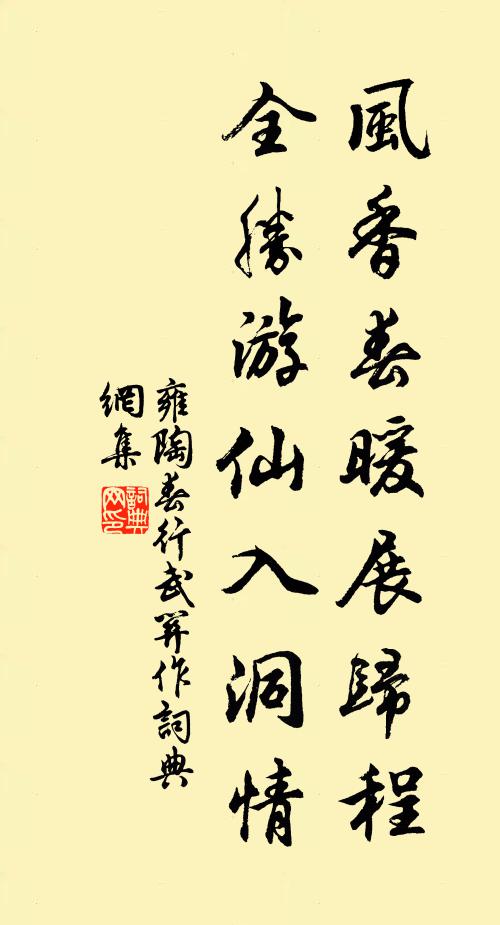 風香春暖展歸程
全勝游仙入洞情
雍陶春行武關作詞典
網集
詞典
网印